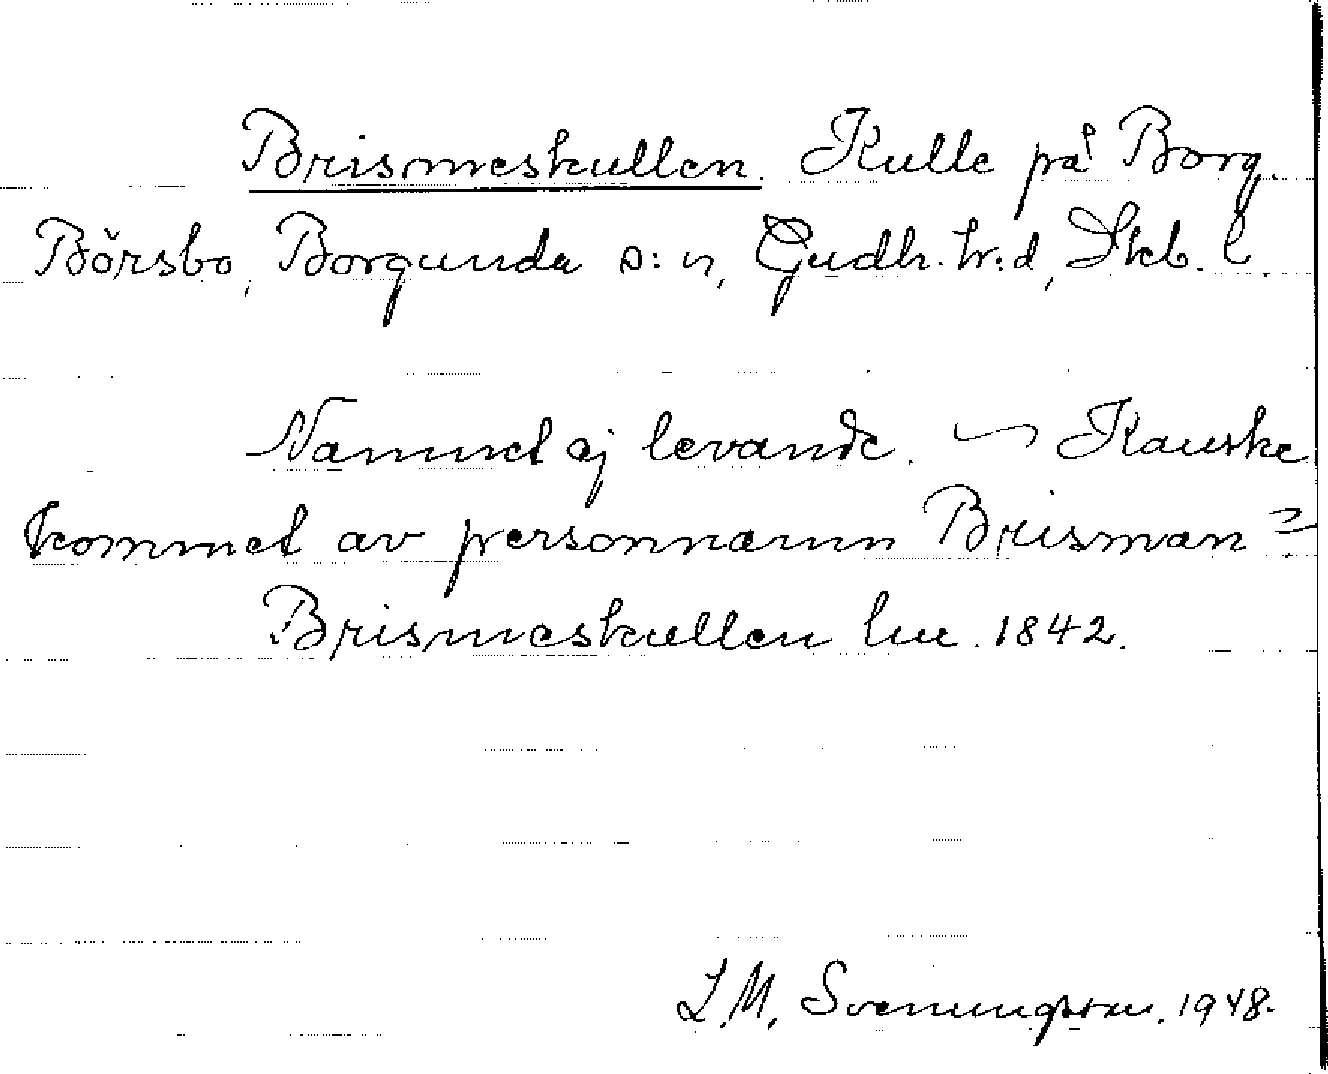 Brismeskullen. Kulle på Borg.
Börsbo, Borgunda s:n, Gudh. hr:d, Skb. l.
Namnet ej levande. ~ Kanske
kommet av personnamn Brisman?
Brismeskullen lm. 1842.
L.M. Svenungsson. 1948.